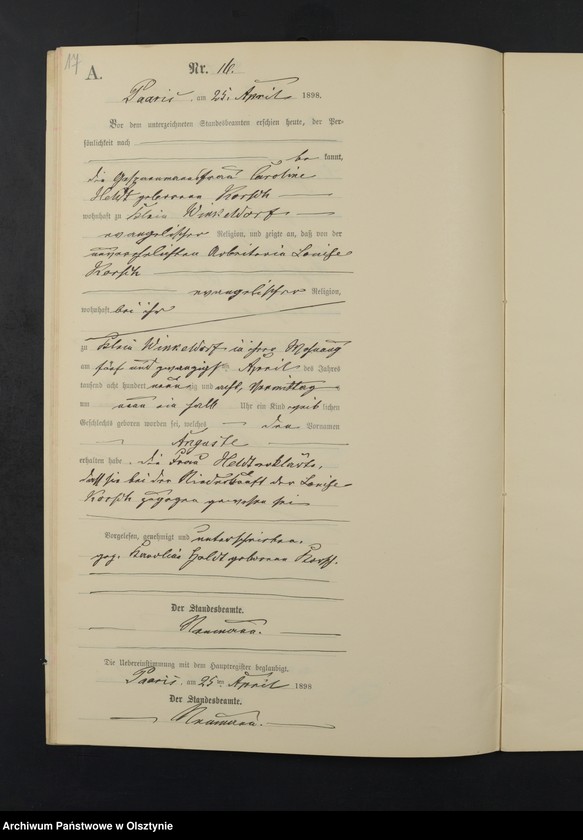 17
A.
Nr. 16.
Paaris, am 25. April 1898.
Vor dem unterzeichneten Standesbeamten erschien heute, der Per-
sönlichkeit nach
be kannt,
die Gespannmannsfrau Caroline
Heldt geborene Korsch
wohnhaft zu Klein Winkeldorf
evangelischer Religion, und zeigte an, daß von der
unverehelichten Arbeiterin Louise
Korsch
evangelischer Religion,
wohnhaft bei ihr
zu Klein Winkeldorf in ihrer Wohnung
am fünf und zwanzigsten April des Jahres
tausend acht hundert neun zig und acht, Vormittag
um neun ein halb Uhr ein Kind weib lichen
Geschlechts geboren worden sei, welches den Vornamen
Auguste
erhalten habe. die Frau Heldt erklärte,
daß sie bei der Niederkunft der Louise
Korsch zugegen gewesen sei
Vorgelesen, genehmigt und unterschrieben.
gez. Karoline Heldt geborene Korsch.
Der Standesbeamte.
Neumann.
Die Uebereinstimmung mit dem Hauptregister beglaubigt.
Paaris, am 25ten April 1898
Der Standesbeamte.
Neumann.
Archiwum Państwowe w Olsztynie